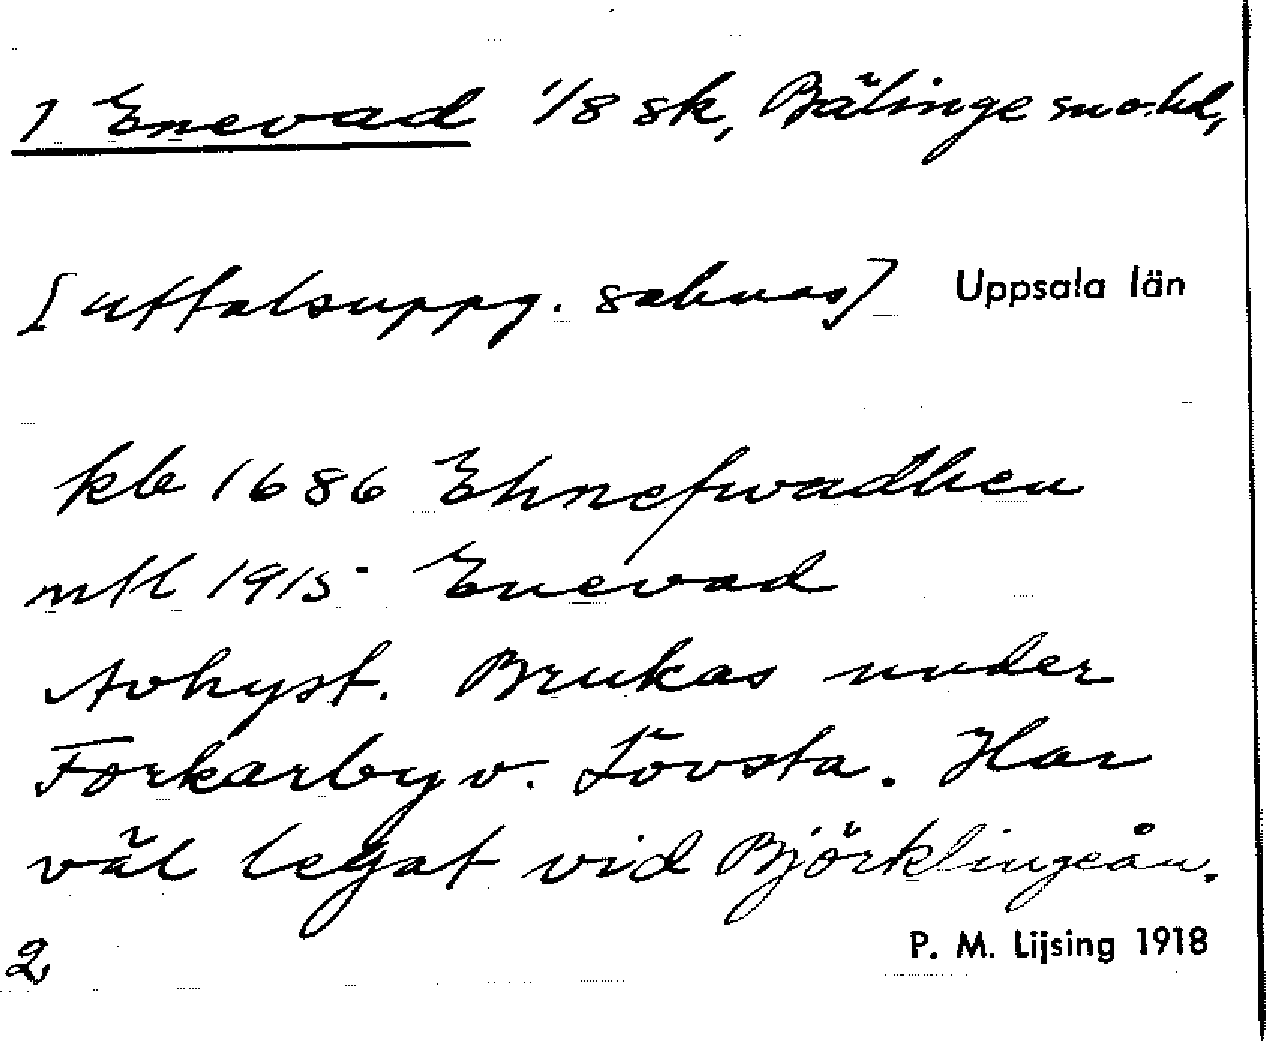 1 Enevad 1/8 sk, Bälinge sn o. hd,
[uttalsuppg. saknas] Uppsala län
kb 1686 Ehnefwadhen
mtl 1915 Enevad
Avhyst. Brukas under
Forkarby o. Lövsta. Har
väl legat vid Björklingeån.
P. M. Lijsing 1918
2